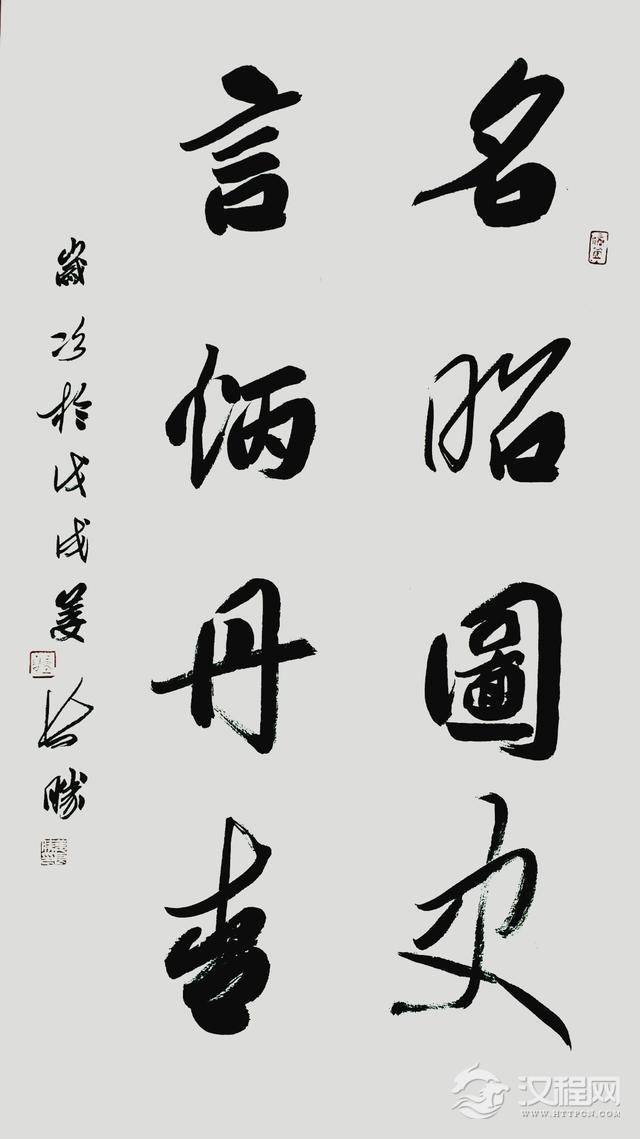 名昭圖史
言炳丹青
歲次於戊戌姜勝
汉程网
WWW.HTTPCN.COM